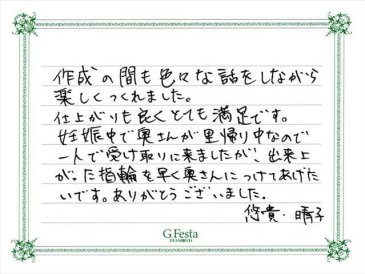 作成の間も色々な話をしながら
楽しくつくれました。
仕上がりも良くとても満足です。
妊娠中で奥さんが里帰り中なので
一人で受け取りに来ましたが、出来上
がった指輪を早く奥さんにつけてあげた
いです。ありがとうございました。
悠貴・晴子
G.Festa
DIAMOND